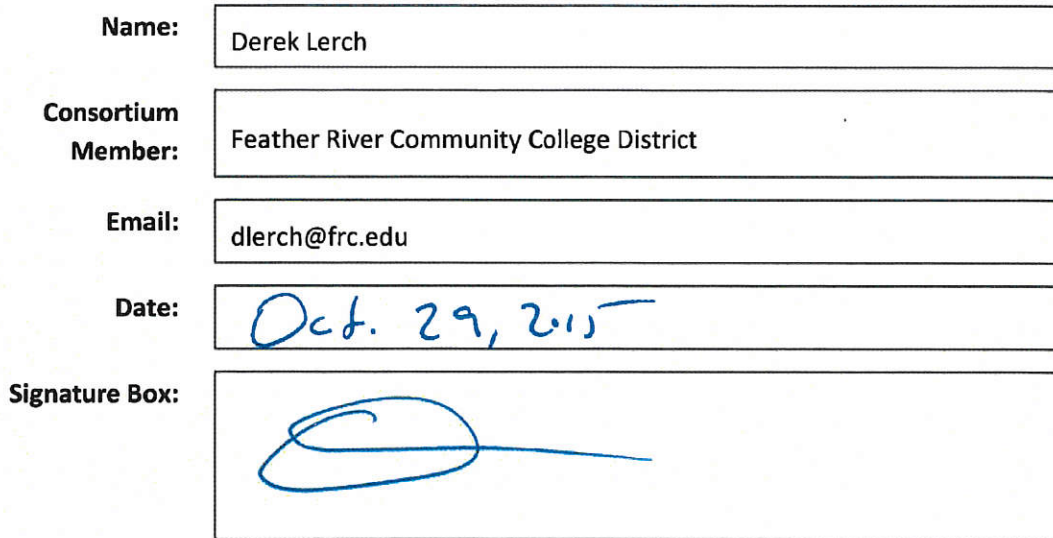 Name:
Derek Lerch
Consortium
Member:
Feather River Community College District
Email:
dlerch@frc.edu
Date:
Oct. 29, 2015
Signature Box: